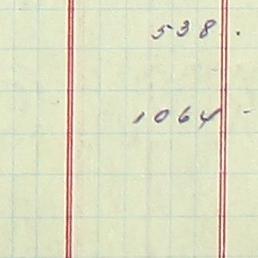 538.
1064-